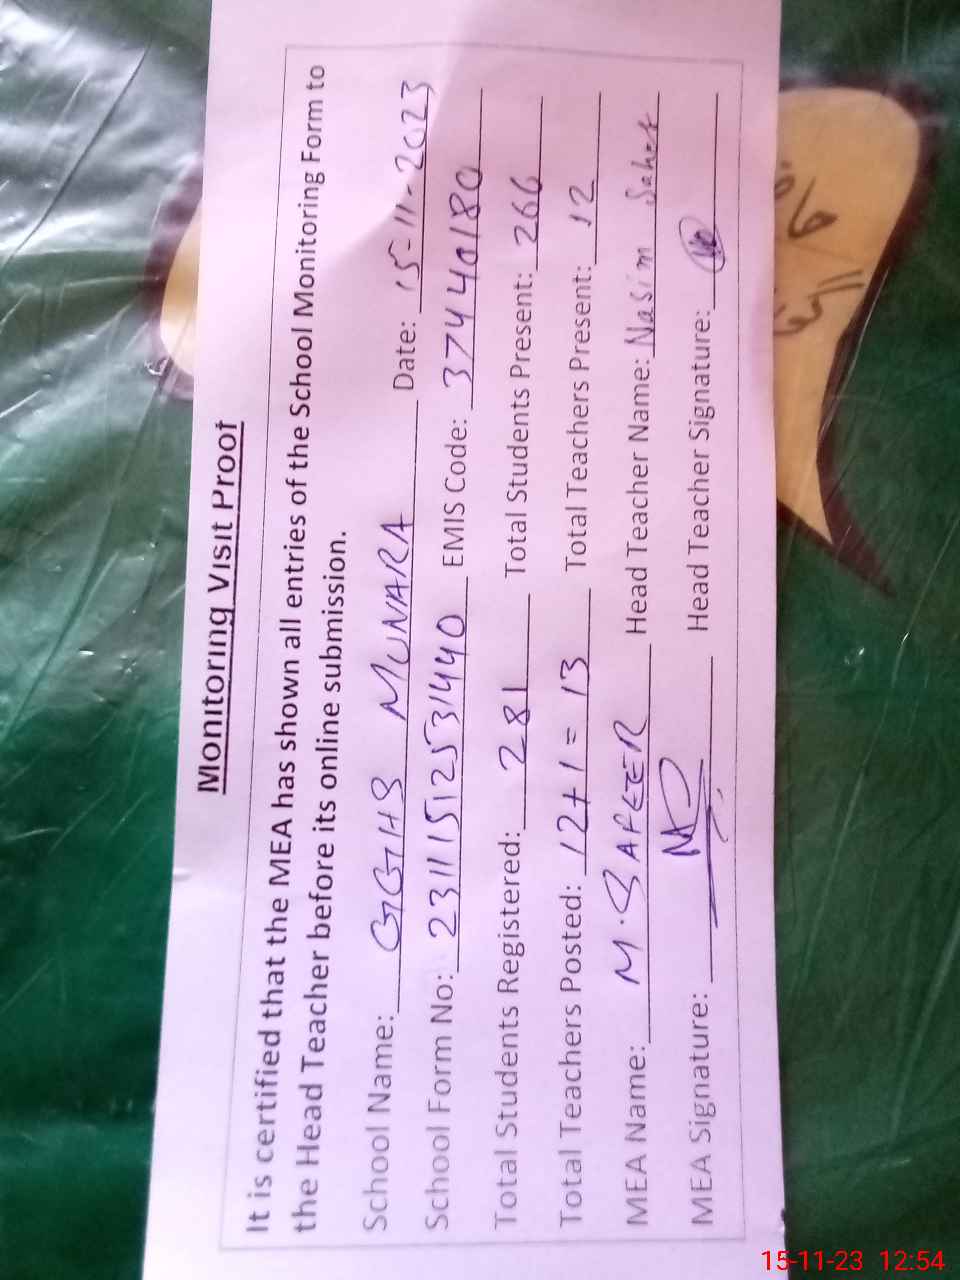 Monitoring Visit Proof
It is certified that the MEA has shown all entries of the School Monitoring Form to
the Head Teacher before its online submission.
School Name: GGHS MUNARA Date: 15-11-2023
School Form No: 231115125331440 EMIS Code: 37440180
Total Students Registered: 281 Total Students Present: 266
Total Teachers Posted: 12+1=13 Total Teachers Present: 12
MEA Name: M. SAFEER Head Teacher Name: Nasim
MEA Signature: Head Teacher Signature:
15-11-23 12:54